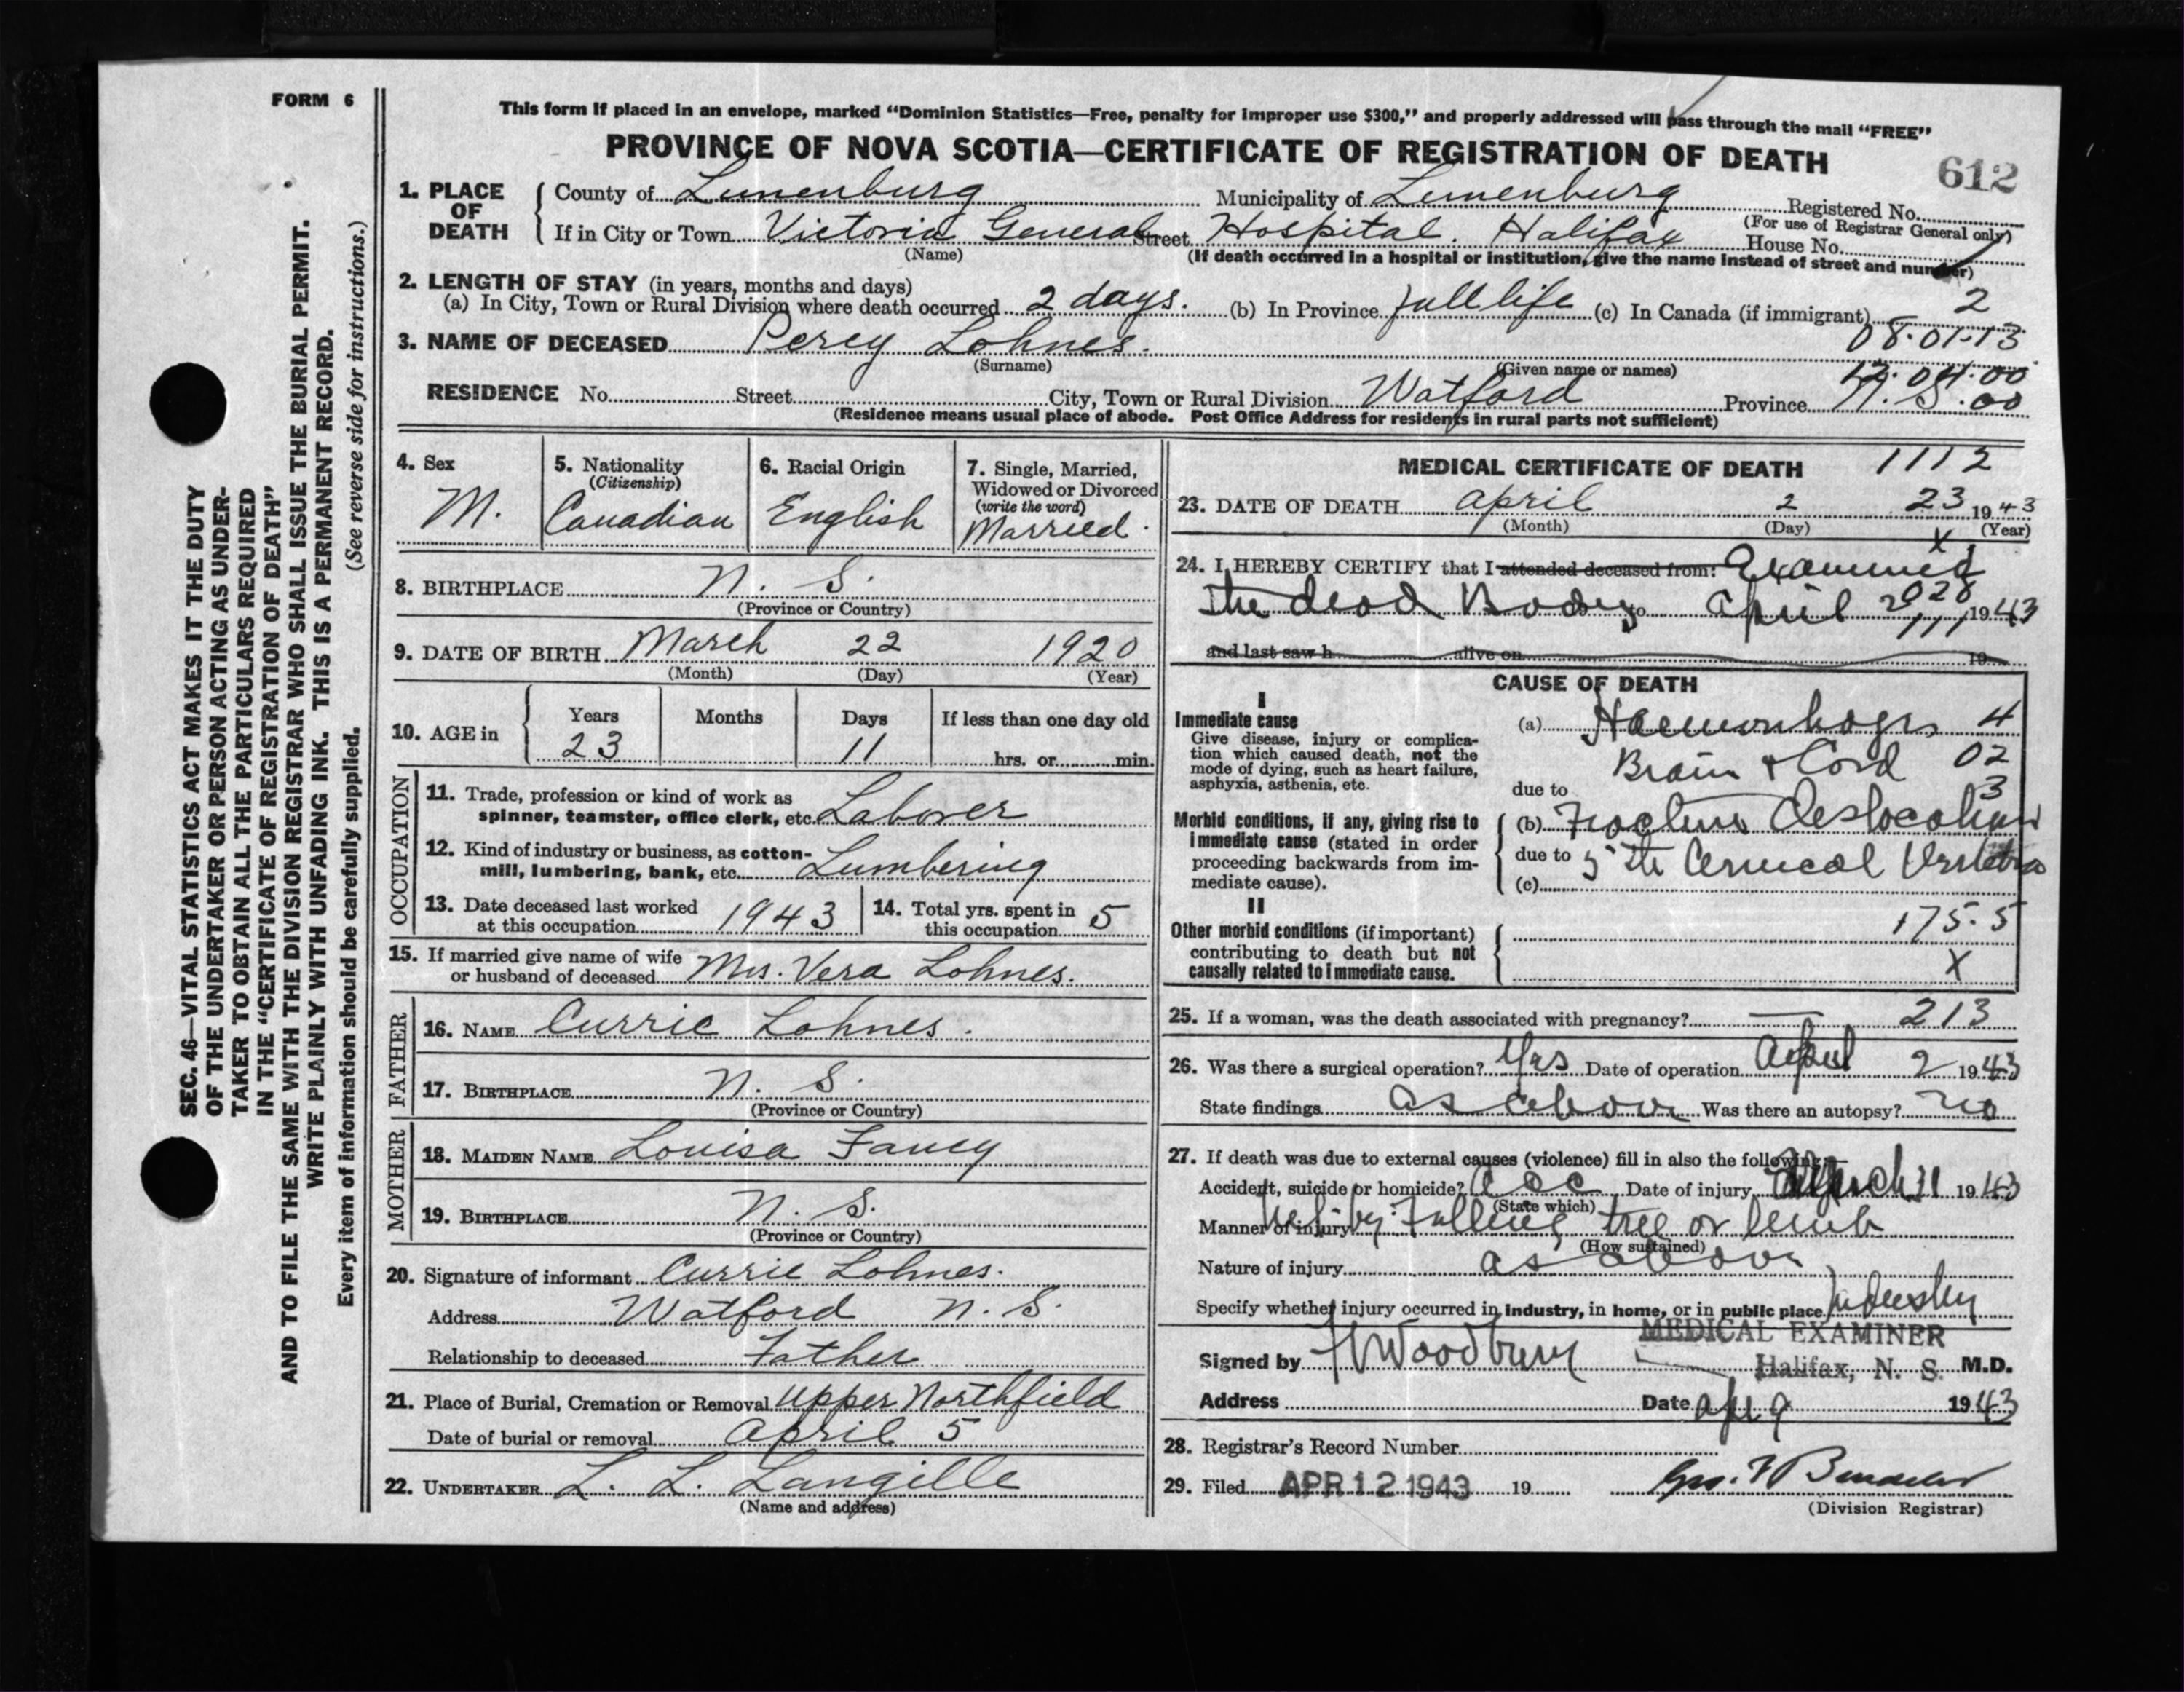 FORM 6
This form if placed in an envelope, marked “Dominion Statistics—Free, penalty for improper use $300,” and properly addressed will pass through the mail “FREE”
PROVINCE OF NOVA SCOTIA—CERTIFICATE OF REGISTRATION OF DEATH
612
1. PLACE OF DEATH
County of Lunenburg Municipality of Lunenburg Registered No.
(For use of Registrar General only)
If in City or Town Victoria General Street Hospital. Halifax House No.
(Name) (If death occurred in a hospital or institution, give the name instead of street and number)
2. LENGTH OF STAY (in years, months and days)
(a) In City, Town or Rural Division where death occurred 2 days. (b) In Province full life (c) In Canada (if immigrant) 2
08.01.13
3. NAME OF DECEASED Percy Lohnes.
(Surname) (Given name or names)
RESIDENCE No. Street City, Town or Rural Division Watford Province N. S. 00
(Residence means usual place of abode. Post Office Address for residents in rural parts not sufficient)
SEC. 46—VITAL STATISTICS ACT MAKES IT THE DUTY
OF THE UNDERTAKER OR PERSON ACTING AS UNDER-
TAKER TO OBTAIN ALL THE PARTICULARS REQUIRED
IN THE “CERTIFICATE OF REGISTRATION OF DEATH”
AND TO FILE THE SAME WITH THE DIVISION REGISTRAR WHO SHALL ISSUE THE BURIAL PERMIT.
WRITE PLAINLY WITH UNFADING INK. THIS IS A PERMANENT RECORD.
Every item of information should be carefully supplied. (See reverse side for instructions.)
4. Sex 5. Nationality 6. Racial Origin 7. Single, Married,
(Citizenship) Widowed or Divorced
(write the word)
M. Canadian English Married.
8. BIRTHPLACE N. S.
(Province or Country)
9. DATE OF BIRTH March 22 1920
(Month) (Day) (Year)
10. AGE in Years Months Days If less than one day old
23 11 hrs. or min.
OCCUPATION
11. Trade, profession or kind of work as
spinner, teamster, office clerk, etc. Laborer
12. Kind of industry or business, as cotton-
mill, lumbering, bank, etc. Lumbering
13. Date deceased last worked
at this occupation 1943
14. Total yrs. spent in
this occupation 5
15. If married give name of wife
or husband of deceased Mrs. Vera Lohnes.
FATHER
16. NAME Currie Lohnes.
17. BIRTHPLACE N. S.
(Province or Country)
MOTHER
18. MAIDEN NAME Louisa Fancy
19. BIRTHPLACE N. S.
(Province or Country)
20. Signature of informant Currie Lohnes.
Address Watford N. S.
Relationship to deceased Father
21. Place of Burial, Cremation or Removal Upper Northfield
Date of burial or removal April 5
22. UNDERTAKER L. L. Langille
(Name and address)
MEDICAL CERTIFICATE OF DEATH 1112
23. DATE OF DEATH April 2 23 1943
(Month) (Day) (Year)
X
24. I HEREBY CERTIFY that I attended deceased from: Examined
the dead Body to April 2 028 1943
111
and last saw h alive on 19
CAUSE OF DEATH
I
Immediate cause
Give disease, injury or complica-
tion which caused death, not the
mode of dying, such as heart failure,
asphyxia, asthenia, etc.
(a) Haemorrhage 4
Brain & Cord 02
due to 3
Morbid conditions, if any, giving rise to
immediate cause (stated in order
proceeding backwards from im-
mediate cause).
(b) Fracture Deslocation
due to 5th Cervical Vertebra
(c)
II
Other morbid conditions (if important)
contributing to death but not
causally related to immediate cause.
175.5
X
25. If a woman, was the death associated with pregnancy? — 213
26. Was there a surgical operation? Yes Date of operation April 2 1943
State findings as above Was there an autopsy? no
27. If death was due to external causes (violence) fill in also the following:—
Accident, suicide or homicide? acc Date of injury March 31 1943
(State which)
Manner of injury by Falling tree or limb
(How sustained)
Nature of injury as above
Specify whether injury occurred in industry, in home, or in public place Industry
MEDICAL EXAMINER
Signed by Woodbury Halifax, N. S. M.D.
Address Date Apl 9 1943
28. Registrar's Record Number
29. Filed APR 12 1943 19
(Division Registrar)